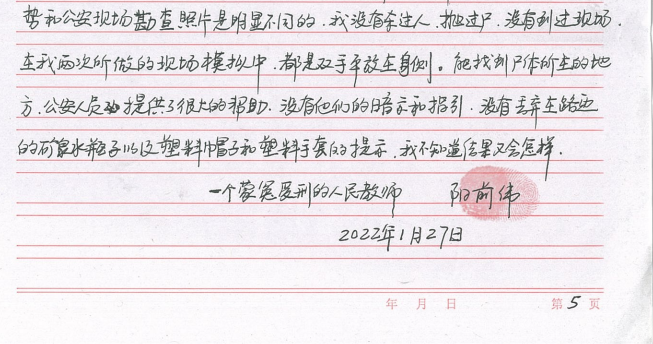 势和公安现场勘查照片是明显不同的，我没有杀过人、抛过尸、没有到过现场，
在我两次所做的现场模拟中，都是双手平放在身侧。能找到尸体所在的地
方、公安人员提供了很大的帮助，没有他们的暗示和指引，没有丢弃在路边
的矿泉水瓶子以及塑料巾帽子和塑料手套的提示，我不知道结果又会怎样。
一个蒙冤受刑的人民教师 阳前伟
2022年1月27日
年 月 日 第5页